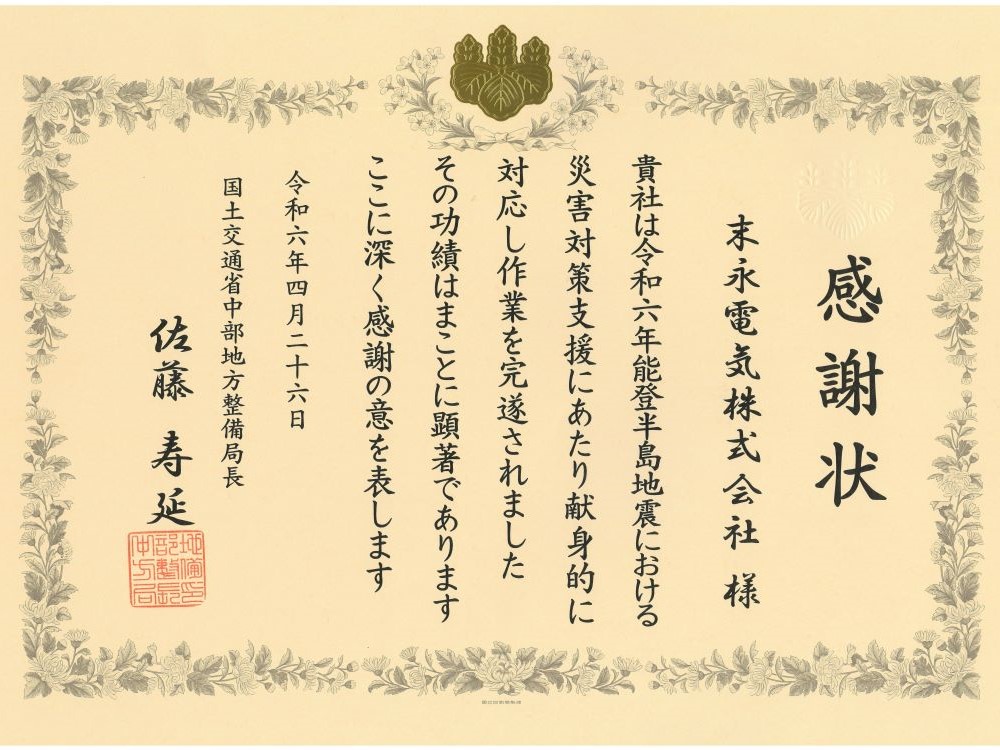 感謝状
末永電気株式会社 様
貴社は令和六年能登半島地震における
災害対策支援にあたり献身的に
対応し作業を完遂されました
その功績はまことに顕著であります
ここに深く感謝の意を表します
令和六年四月二十六日
国土交通省中部地方整備局長
佐藤 寿延